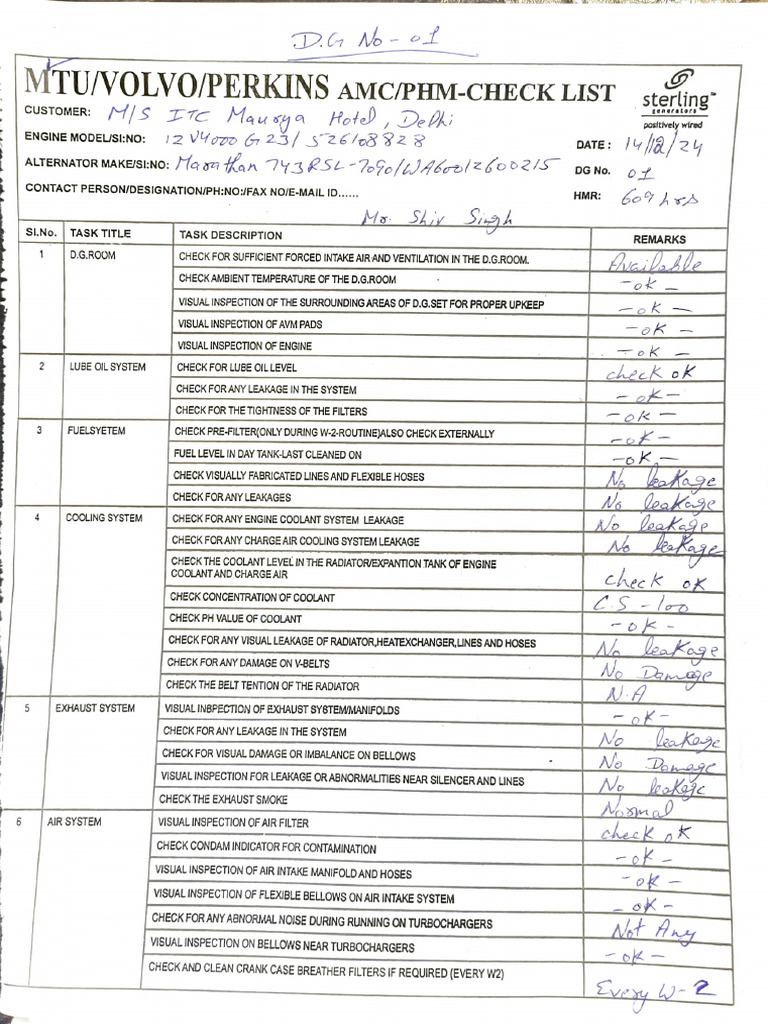 D.G No - 01
MTU/VOLVO/PERKINS AMC/PHM-CHECK LIST
sterling
generators
positively wired
CUSTOMER: M/S ITC Maurya Hotel, Delhi
ENGINE MODEL/SI:NO: 12V4000G23/526108828
DATE: 14/12/24
ALTERNATOR MAKE/SI:NO: Marathan 743RSL-7090/WA60012600215
DG No. 01
CONTACT PERSON/DESIGNATION/PH:NO:/FAX NO/E-MAIL ID......
HMR: 609 hrs
Mr. Shiv Singh
SI.No. TASK TITLE TASK DESCRIPTION REMARKS
1 D.G.ROOM CHECK FOR SUFFICIENT FORCED INTAKE AIR AND VENTILATION IN THE D.G.ROOM. Available
CHECK AMBIENT TEMPERATURE OF THE D.G.ROOM -OK-
VISUAL INSPECTION OF THE SURROUNDING AREAS OF D.G.SET FOR PROPER UPKEEP -OK-
VISUAL INSPECTION OF AVM PADS -OK-
VISUAL INSPECTION OF ENGINE -OK-
2 LUBE OIL SYSTEM CHECK FOR LUBE OIL LEVEL check OK
CHECK FOR ANY LEAKAGE IN THE SYSTEM -OK-
CHECK FOR THE TIGHTNESS OF THE FILTERS -OK-
3 FUELSYETEM CHECK PRE-FILTER(ONLY DURING W-2-ROUTINE)ALSO CHECK EXTERNALLY -OK-
FUEL LEVEL IN DAY TANK-LAST CLEANED ON -OK-
CHECK VISUALLY FABRICATED LINES AND FLEXIBLE HOSES No leakage
CHECK FOR ANY LEAKAGES No leakage
4 COOLING SYSTEM CHECK FOR ANY ENGINE COOLANT SYSTEM LEAKAGE No leakage
CHECK FOR ANY CHARGE AIR COOLING SYSTEM LEAKAGE No leakage
CHECK THE COOLANT LEVEL IN THE RADIATOR/EXPANTION TANK OF ENGINE
COOLANT AND CHARGE AIR check OK
CHECK CONCENTRATION OF COOLANT C.S-100
CHECK PH VALUE OF COOLANT -OK-
CHECK FOR ANY VISUAL LEAKAGE OF RADIATOR,HEATEXCHANGER,LINES AND HOSES No leakage
CHECK FOR ANY DAMAGE ON V-BELTS No Damage
CHECK THE BELT TENTION OF THE RADIATOR N.A
5 EXHAUST SYSTEM VISUAL INBPECTION OF EXHAUST SYSTEM/MANIFOLDS -OK-
CHECK FOR ANY LEAKAGE IN THE SYSTEM No leakage
CHECK FOR VISUAL DAMAGE OR IMBALANCE ON BELLOWS No Damage
VISUAL INSPECTION FOR LEAKAGE OR ABNORMALITIES NEAR SILENCER AND LINES No leakege
CHECK THE EXHAUST SMOKE Normal
6 AIR SYSTEM VISUAL INSPECTION OF AIR FILTER check OK
CHECK CONDAM INDICATOR FOR CONTAMINATION -OK-
VISUAL INSPECTION OF AIR INTAKE MANIFOLD AND HOSES -OK-
VISUAL INSPECTION OF FLEXIBLE BELLOWS ON AIR INTAKE SYSTEM -OK-
CHECK FOR ANY ABNORMAL NOISE DURING RUNNING ON TURBOCHARGERS Not Any
VISUAL INSPECTION ON BELLOWS NEAR TURBOCHARGERS -OK-
CHECK AND CLEAN CRANK CASE BREATHER FILTERS IF REQUIRED (EVERY W2) Every W-2